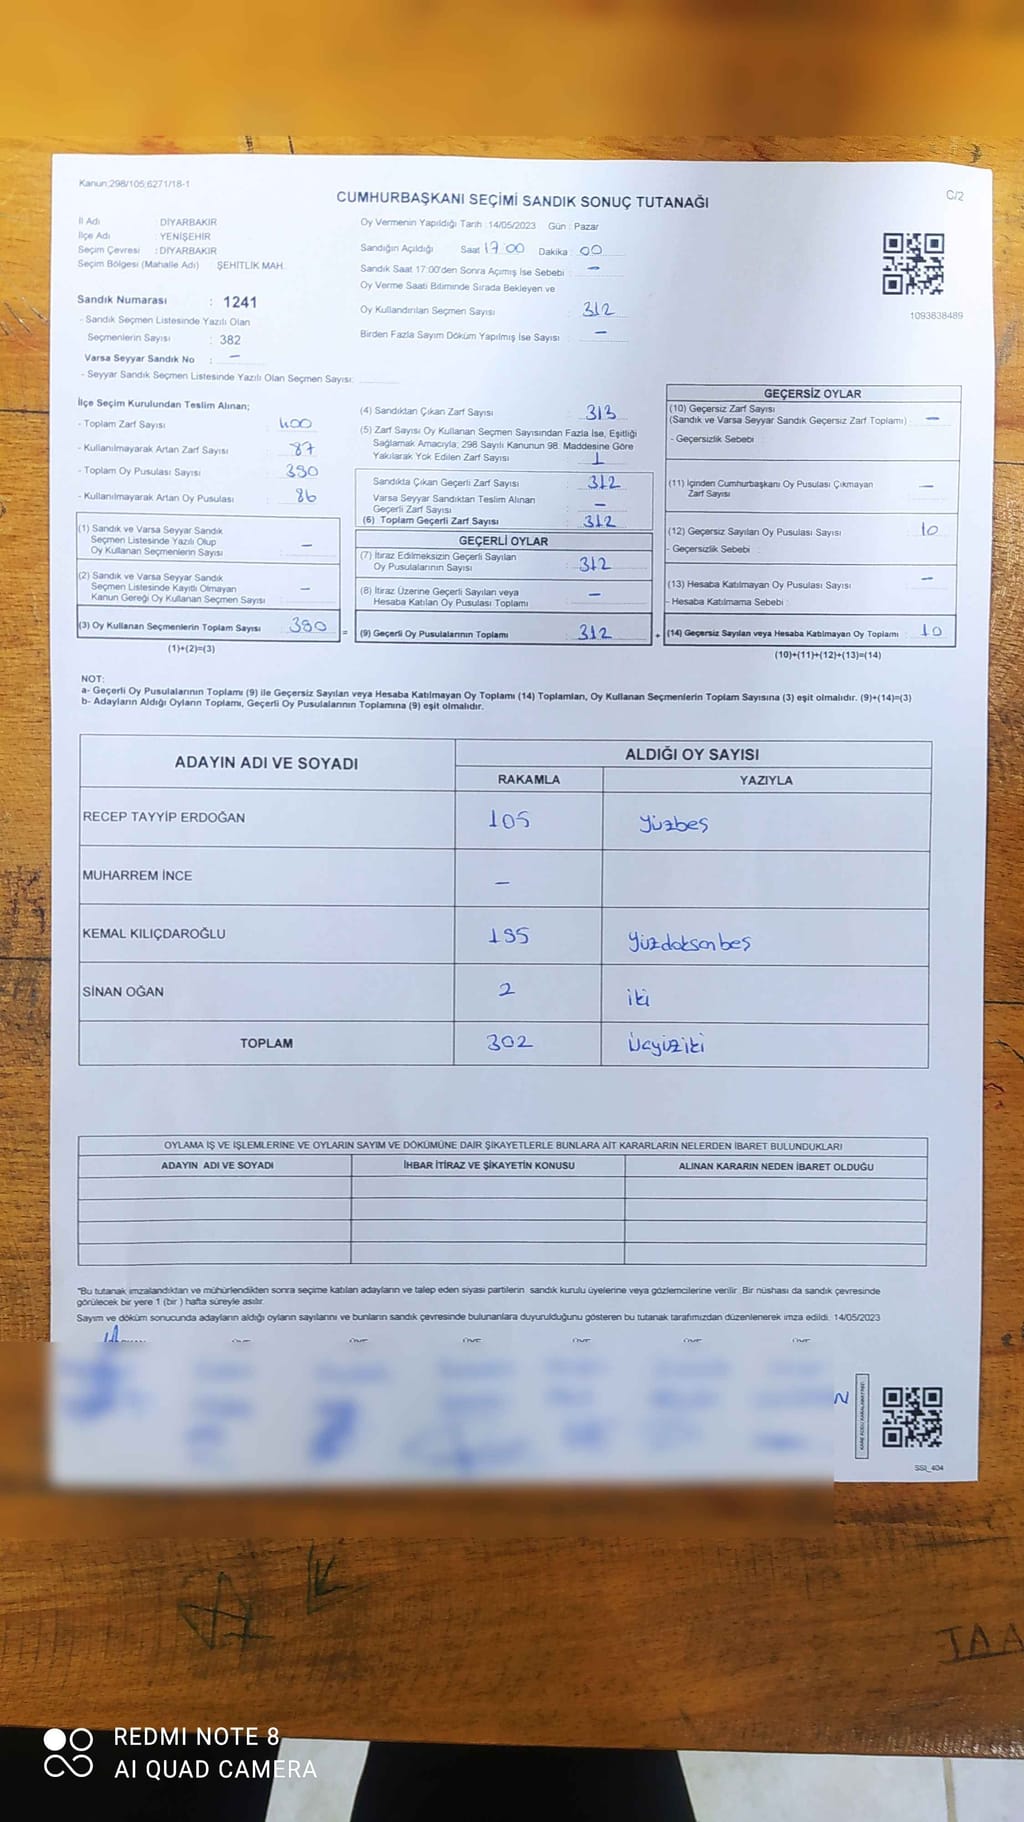 Kanun;298/105;6271/18-1
C/2
CUMHURBAŞKANI SEÇİMİ SANDIK SONUÇ TUTANAĞI
İl Adı : DİYARBAKIR
İlçe Adı : YENİŞEHİR
Seçim Çevresi : DİYARBAKIR
Seçim Bölgesi (Mahalle Adı) ŞEHİTLİK MAH.
Sandık Numarası : 1241
- Sandık Seçmen Listesinde Yazılı Olan
Seçmenlerin Sayısı : 382
Varsa Seyyar Sandık No : –
- Seyyar Sandık Seçmen Listesinde Yazılı Olan Seçmen Sayısı:
Oy Vermenin Yapıldığı Tarih :14/05/2023 Gün : Pazar
Sandığın Açıldığı Saat 17.00 Dakika : 00
Sandık Saat 17:00'den Sonra Açımış İse Sebebi : –
Oy Verme Saati Bitiminde Sırada Bekleyen ve
Oy Kullandırılan Seçmen Sayısı : 312
Birden Fazla Sayım Döküm Yapılmış İse Sayısı : –
1093838489
İlçe Seçim Kurulundan Teslim Alınan;
- Toplam Zarf Sayısı : 400
- Kullanılmayarak Artan Zarf Sayısı : 87
- Toplam Oy Pusulası Sayısı : 390
- Kullanılmayarak Artan Oy Pusulası : 86
(1) Sandık ve Varsa Seyyar Sandık
Seçmen Listesinde Yazılı Olup
Oy Kullanan Seçmenlerin Sayısı : –
(2) Sandık ve Varsa Seyyar Sandık
Seçmen Listesinde Kayıtlı Olmayan
Kanun Gereği Oy Kullanan Seçmen Sayısı : –
(3) Oy Kullanan Seçmenlerin Toplam Sayısı : 390 =
(1)+(2)=(3)
(4) Sandıktan Çıkan Zarf Sayısı : 313
(5) Zarf Sayısı Oy Kullanan Seçmen Sayısından Fazla İse, Eşitliği
Sağlamak Amacıyla; 298 Sayılı Kanunun 98. Maddesine Göre
Yakılarak Yok Edilen Zarf Sayısı : 1
Sandıkta Çıkan Geçerli Zarf Sayısı : 312
Varsa Seyyar Sandıktan Teslim Alınan
Geçerli Zarf Sayısı : –
(6) Toplam Geçerli Zarf Sayısı : 312
GEÇERLİ OYLAR
(7) İtiraz Edilmeksizin Geçerli Sayılan
Oy Pusulalarının Sayısı : 312
(8) İtiraz Üzerine Geçerli Sayılan veya
Hesaba Katılan Oy Pusulası Toplamı : –
(9) Geçerli Oy Pusulalarının Toplamı : 312 +
GEÇERSİZ OYLAR
(10) Geçersiz Zarf Sayısı
(Sandık ve Varsa Seyyar Sandık Geçersiz Zarf Toplamı) : –
- Geçersizlik Sebebi :
(11) İçinden Cumhurbaşkanı Oy Pusulası Çıkmayan
Zarf Sayısı : –
(12) Geçersiz Sayılan Oy Pusulası Sayısı : 10
- Geçersizlik Sebebi :
(13) Hesaba Katılmayan Oy Pusulası Sayısı : –
- Hesaba Katılmama Sebebi :
(14) Geçersiz Sayılan veya Hesaba Katılmayan Oy Toplamı : 10
(10)+(11)+(12)+(13)=(14)
NOT:
a- Geçerli Oy Pusulalarının Toplamı (9) ile Geçersiz Sayılan veya Hesaba Katılmayan Oy Toplamı (14) Toplamları, Oy Kullanan Seçmenlerin Toplam Sayısına (3) eşit olmalıdır. (9)+(14)=(3)
b- Adayların Aldığı Oyların Toplamı, Geçerli Oy Pusulalarının Toplamına (9) eşit olmalıdır.
ADAYIN ADI VE SOYADI
ALDIĞI OY SAYISI
RAKAMLA YAZIYLA
RECEP TAYYİP ERDOĞAN 105 yüzbeş
MUHARREM İNCE –
KEMAL KILIÇDAROĞLU 195 yüzdoksanbeş
SİNAN OĞAN 2 iki
TOPLAM 302 üçyüziki
OYLAMA İŞ VE İŞLEMLERİNE VE OYLARIN SAYIM VE DÖKÜMÜNE DAİR ŞİKAYETLERLE BUNLARA AİT KARARLARIN NELERDEN İBARET BULUNDUKLARI
ADAYIN ADI VE SOYADI İHBAR İTİRAZ VE ŞİKAYETİN KONUSU ALINAN KARARIN NEDEN İBARET OLDUĞU
"Bu tutanak imzalandıktan ve mühürlendikten sonra seçime katılan adayların ve talep eden siyasi partilerin sandık kurulu üyelerine veya gözlemcilerine verilir. Bir nüshası da sandık çevresinde
görülecek bir yere 1 (bir ) hafta süreyle asılır.
Sayım ve döküm sonucunda adayların aldığı oyların sayılarını ve bunların sandık çevresinde bulunanlara duyurulduğunu gösteren bu tutanak tarafımızdan düzenlenerek imza edildi. 14/05/2023
N
SSI_404
REDMI NOTE 8
AI QUAD CAMERA